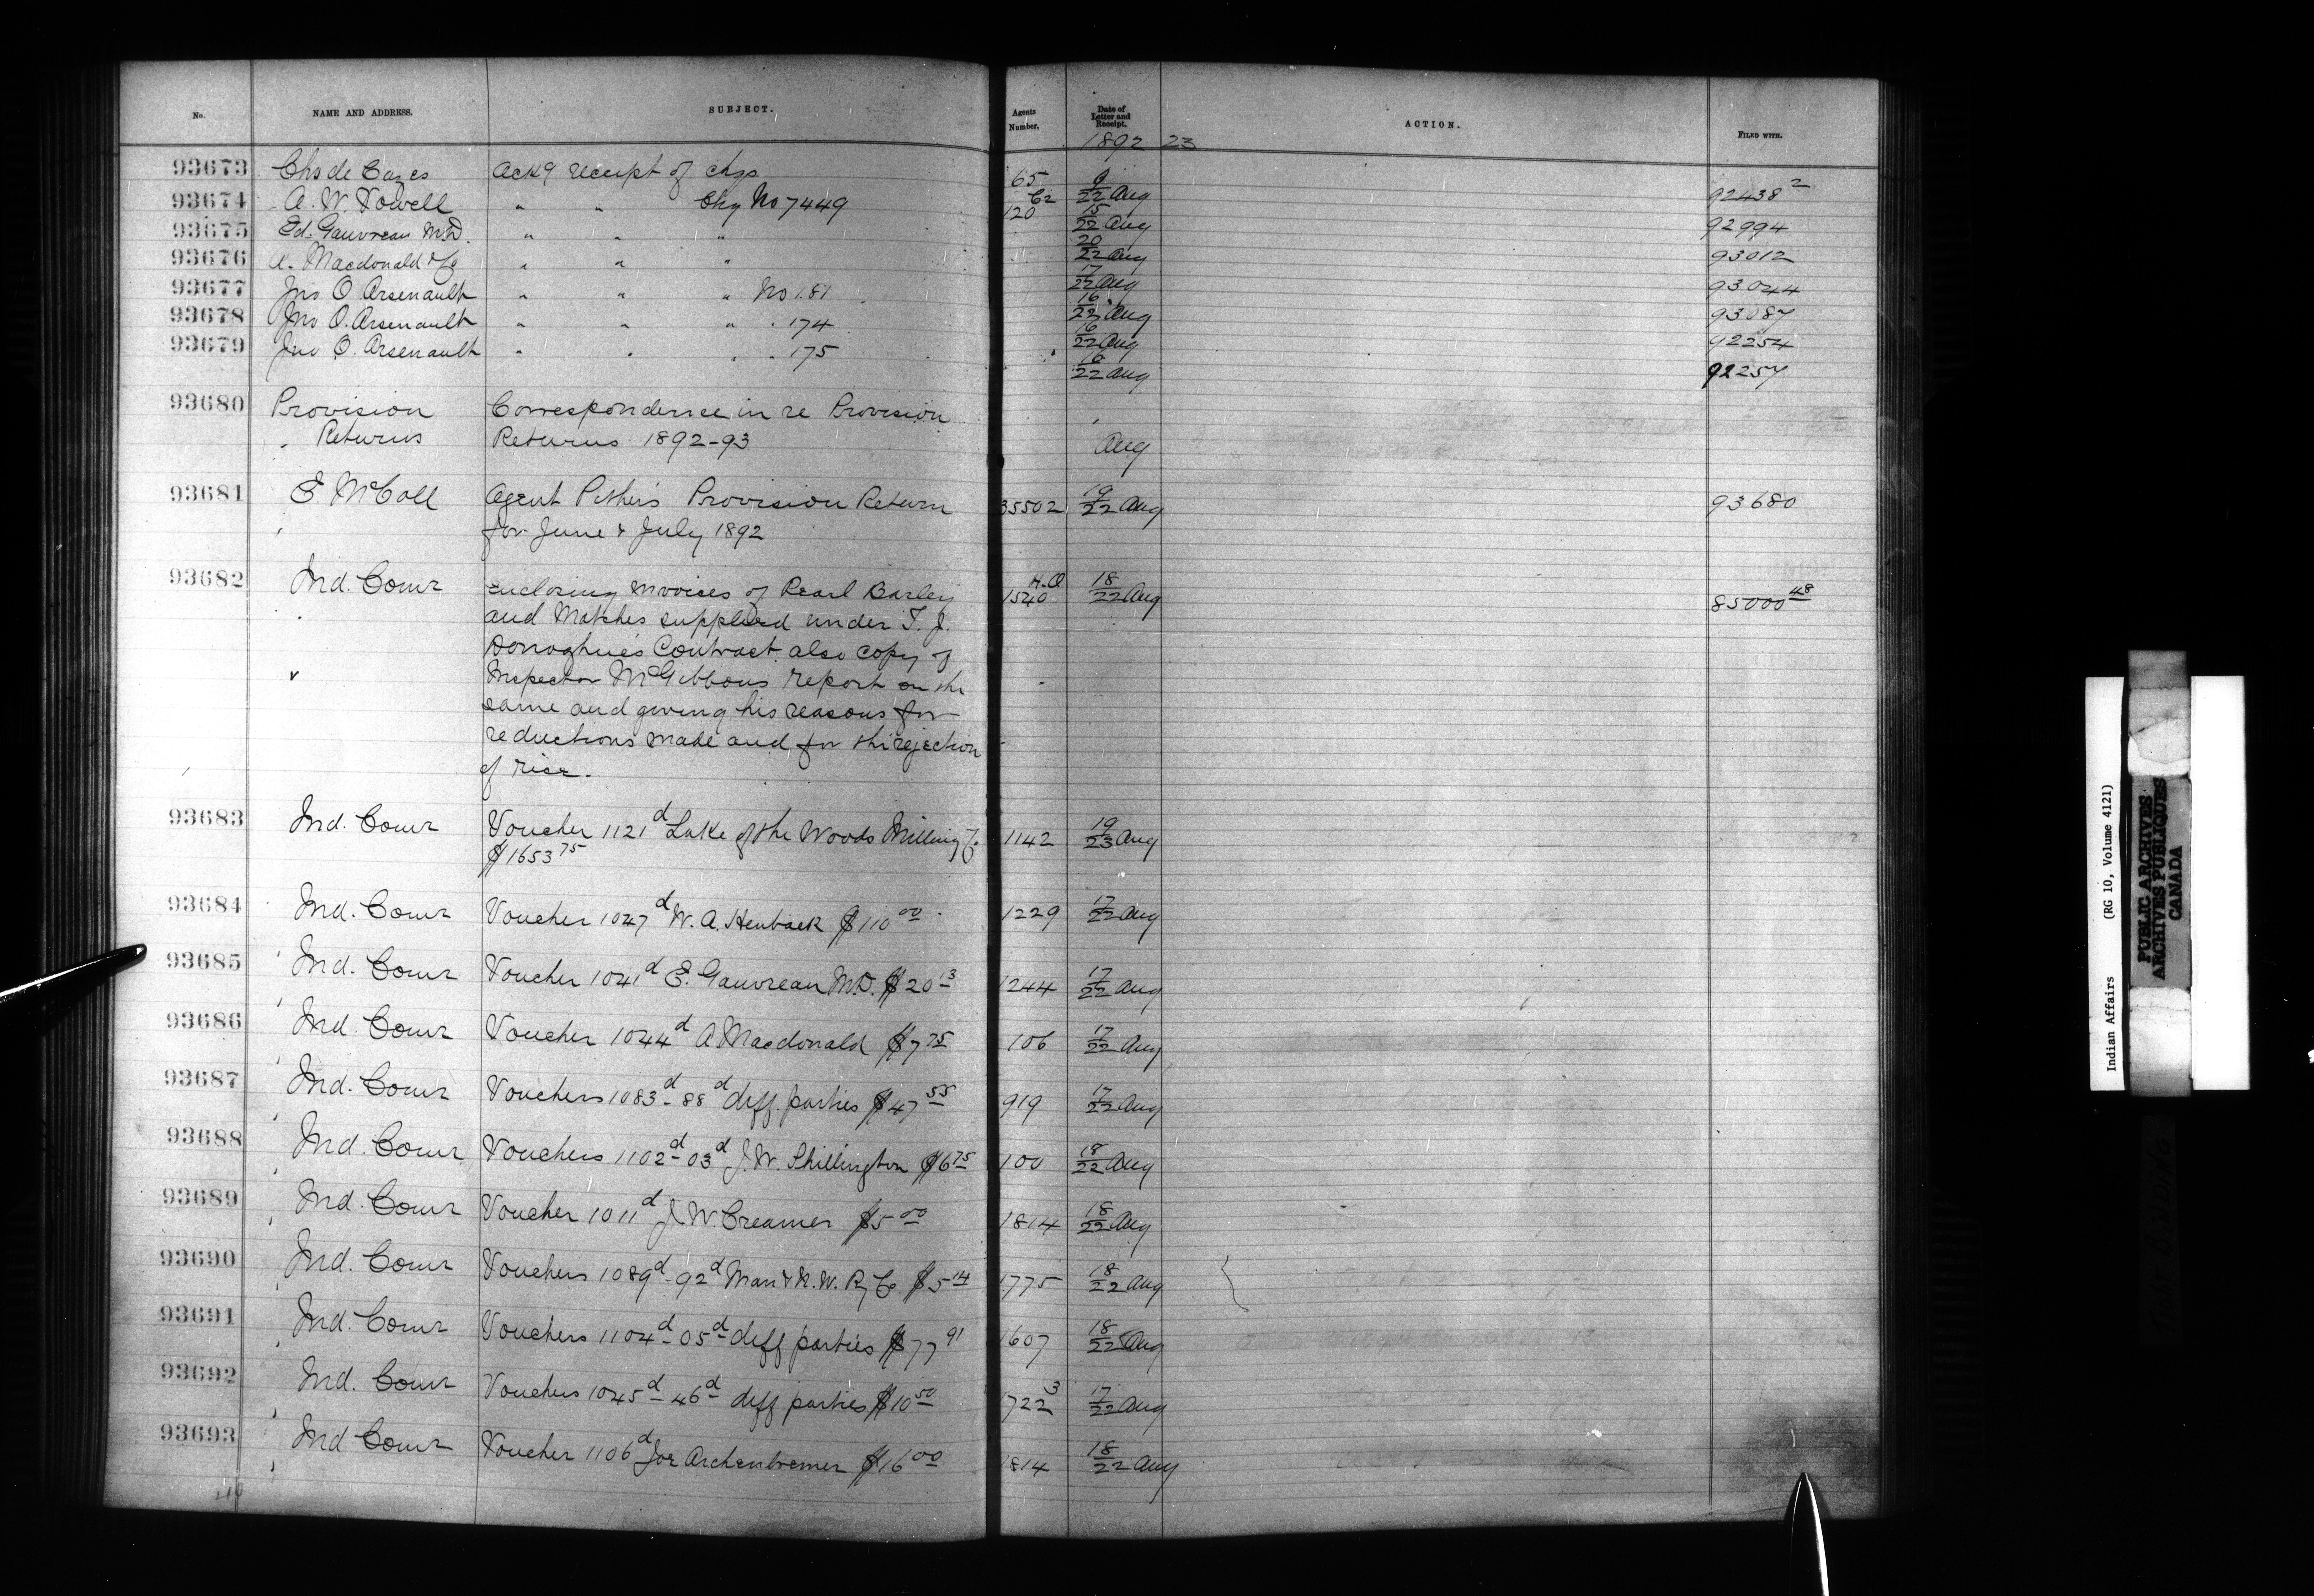 No. NAME AND ADDRESS. SUBJECT. Agents Number. Date of Letter and Receipt. ACTION. FILED WITH.
1892 23
93673 Chs de Cazes Ackg receipt of chqs 65 9/22 Aug 92438 2
93674 A. W. Powell " " Chq No 7449 120 Cz 15/22 Aug 92994
93675 Ed. Gauvreau M.D. " " " 20/22 Aug 93012
93676 A. Macdonald & Co " " " 17/22 Aug 93044
93677 Jno O. Arsenault " " " No 181 16/22 Aug 93087
93678 Jno O. Arsenault " " " " 174 16/22 Aug 92254
93679 Jno O. Arsenault " " " " 175 16/22 Aug 92257
93680 Provision Correspondence in re Provision
" Returns Returns 1892-93 Aug
93681 E. McColl Agent Pither's Provision Return 35502 19/22 Aug 93680
for June & July 1892
93682 Ind. Comr Enclosing invoices of Pearl Barley H.O 1540 18/22 Aug 85000 48
and Matches supplied under T. J.
Donaghue's Contract also copy of
Inspector McGibbons report on the
same and giving his reasons for
reductions made and for the rejection
of rice.
93683 Ind. Comr Voucher 1121d Lake of the Woods Milling Co 1142 19/23 Aug
$1653 75
93684 Ind. Comr Voucher 1047d W. A. Henback $110 00 1229 17/22 Aug
93685 Ind. Comr Voucher 1041d E. Gauvreau M.D. $20 13 1244 17/22 Aug
93686 Ind. Comr Voucher 1044d A Macdonald $7 75 106 17/22 Aug
93687 Ind. Comr Vouchers 1083d-88d diff. parties $47 55 919 17/22 Aug
93688 Ind. Comr Vouchers 1102d-03d J. W. Shillington $6 75 100 18/22 Aug
93689 Ind. Comr Voucher 1011d J. W. Creamer $5 00 1814 18/22 Aug
93690 Ind. Comr Vouchers 1089d-92d Man & N. W. Ry Co. $5 14 1775 18/22 Aug
93691 Ind. Comr Vouchers 1104d-05d diff parties $77 91 1607 18/22 Aug
93692 Ind. Comr Vouchers 1045d-46d diff parties $10 50 1722 3 17/22 Aug
93693 Ind Comr Voucher 1106d Joe Archenbremer $16 00 1814 18/22 Aug
Indian Affairs (RG 10, Volume 4121)
PUBLIC ARCHIVES
ARCHIVES PUBLIQUES
CANADA